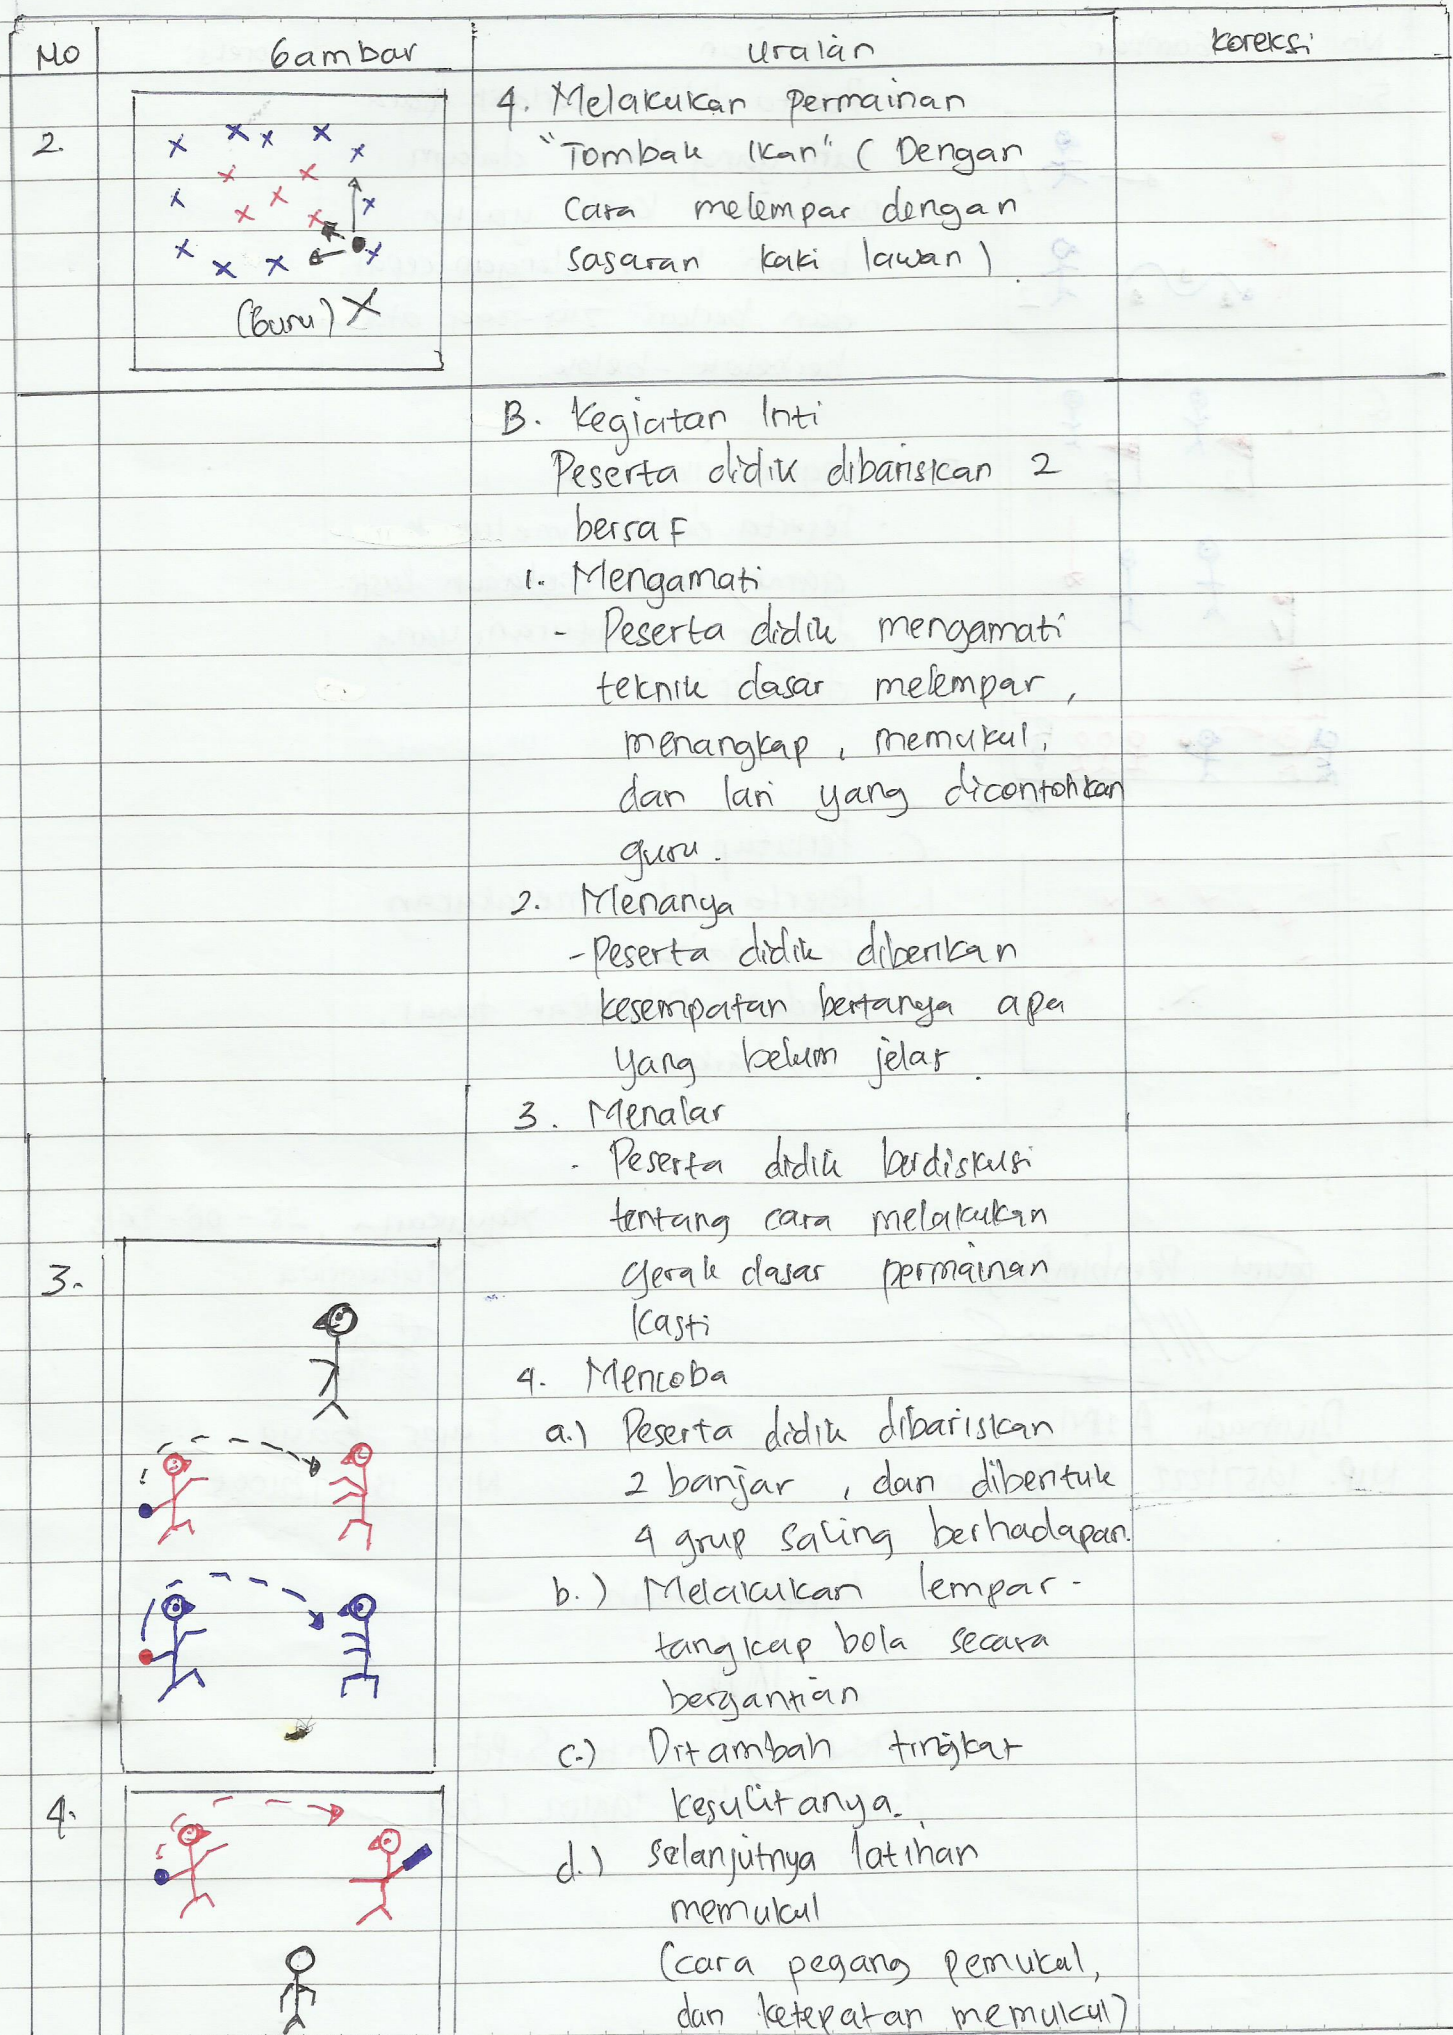 No Gambar Uraian Koreksi
2. 4. Melakukan Permainan
"Tombak Ikan" (Dengan
Cara melempar dengan
Sasaran kaki lawan)
(Guru)
B. Kegiatan Inti
Peserta didik dibariskan 2
bersaf
1. Mengamati
- Peserta didik mengamati
teknik dasar melempar,
menangkap, memukul,
dan lari yang dicontohkan
guru.
2. Menanya
- Peserta didik diberikan
kesempatan bertanya apa
yang belum jelas.
3. Menalar
- Peserta didik berdiskusi
tentang cara melakukan
3. gerak dasar permainan
Kasti
4. Mencoba
a.) Peserta didik dibariskan
2 banjar, dan dibentuk
4 grup saling berhadapan.
b.) Melakukan lempar-
tangkap bola secara
bergantian
c.) Ditambah tingkat
4. kesulitanya.
d.) selanjutnya latihan
memukul
(cara pegang pemukul,
dan ketepatan memukul)